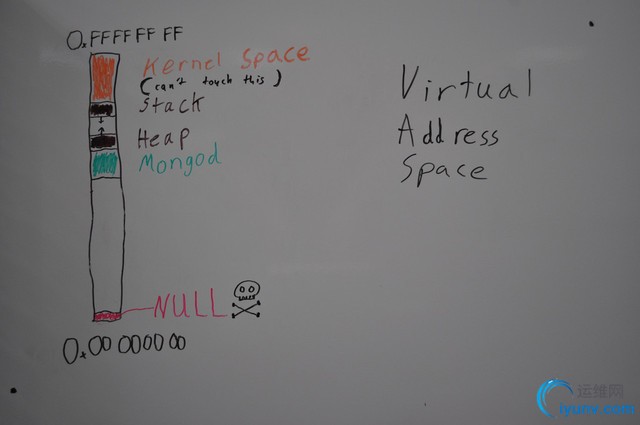 0xFFFFFFFF
Kernel Space
(can't touch this)
Stack
Heap
Mongod
NULL
0x00000000
Virtual
Address
Space
运维网
iyunv.com